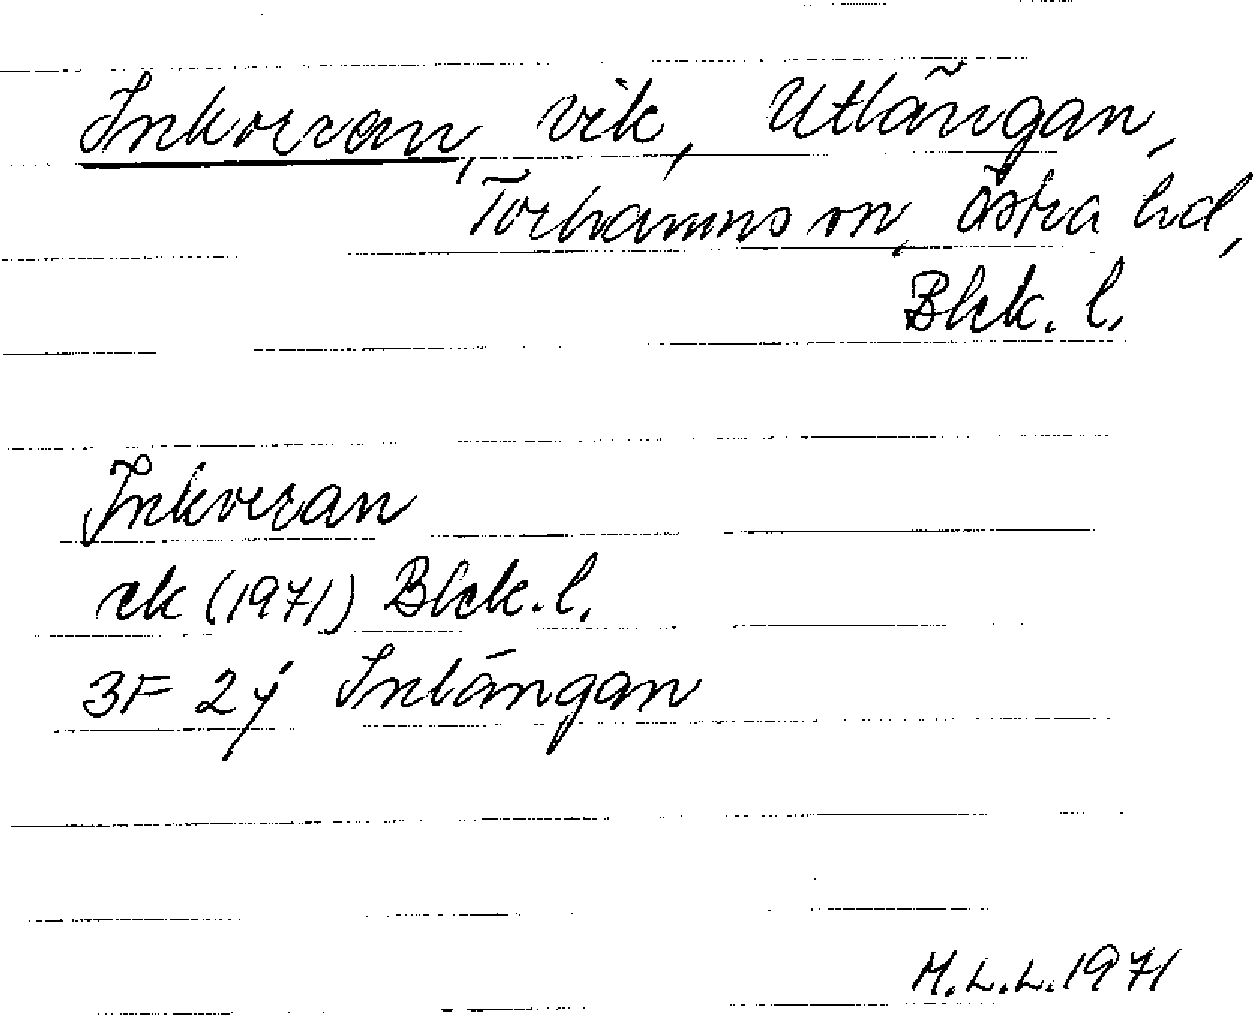 Inkveran, vik, Utlängan,
Torhamns sn, Östra hd,
Blek. l.
Inkveran
ek (1971) Blek. l.
3F 2j Inlängan
M.L.L. 1971